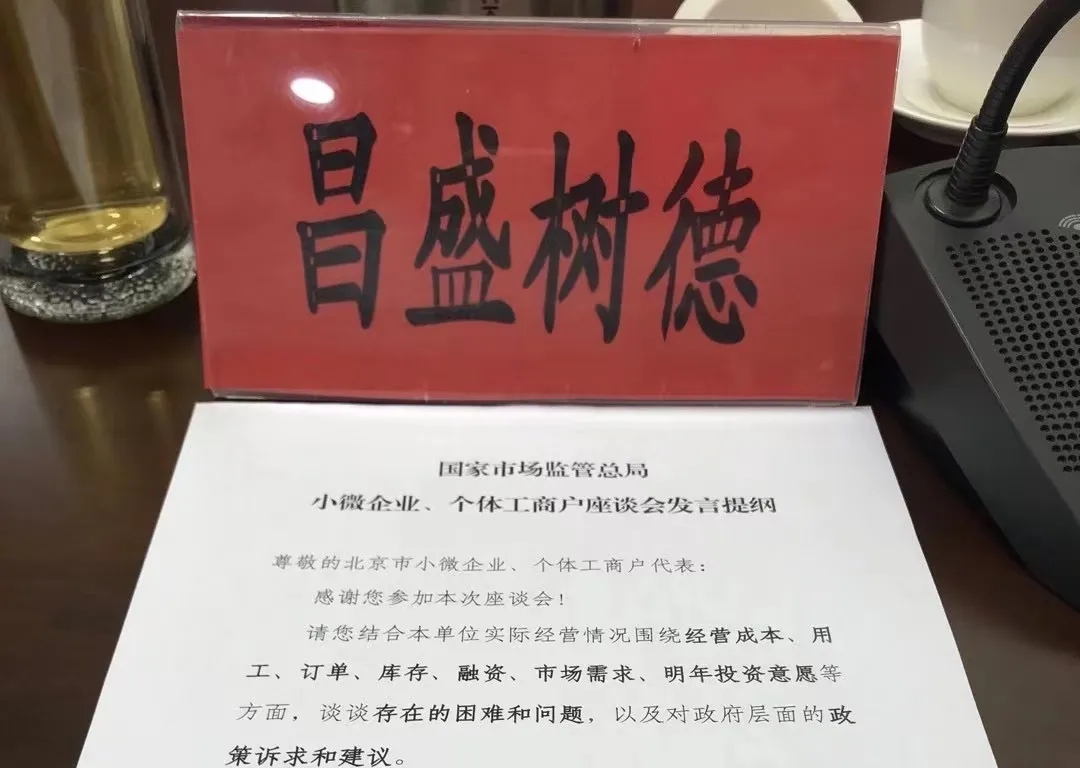 昌盛树德
国家市场监管总局
小微企业、个体工商户座谈会发言提纲
尊敬的北京市小微企业、个体工商户代表：
感谢您参加本次座谈会！
请您结合本单位实际经营情况围绕经营成本、用
工、订单、库存、融资、市场需求、明年投资意愿等
方面，谈谈存在的困难和问题，以及对政府层面的政
策诉求和建议。